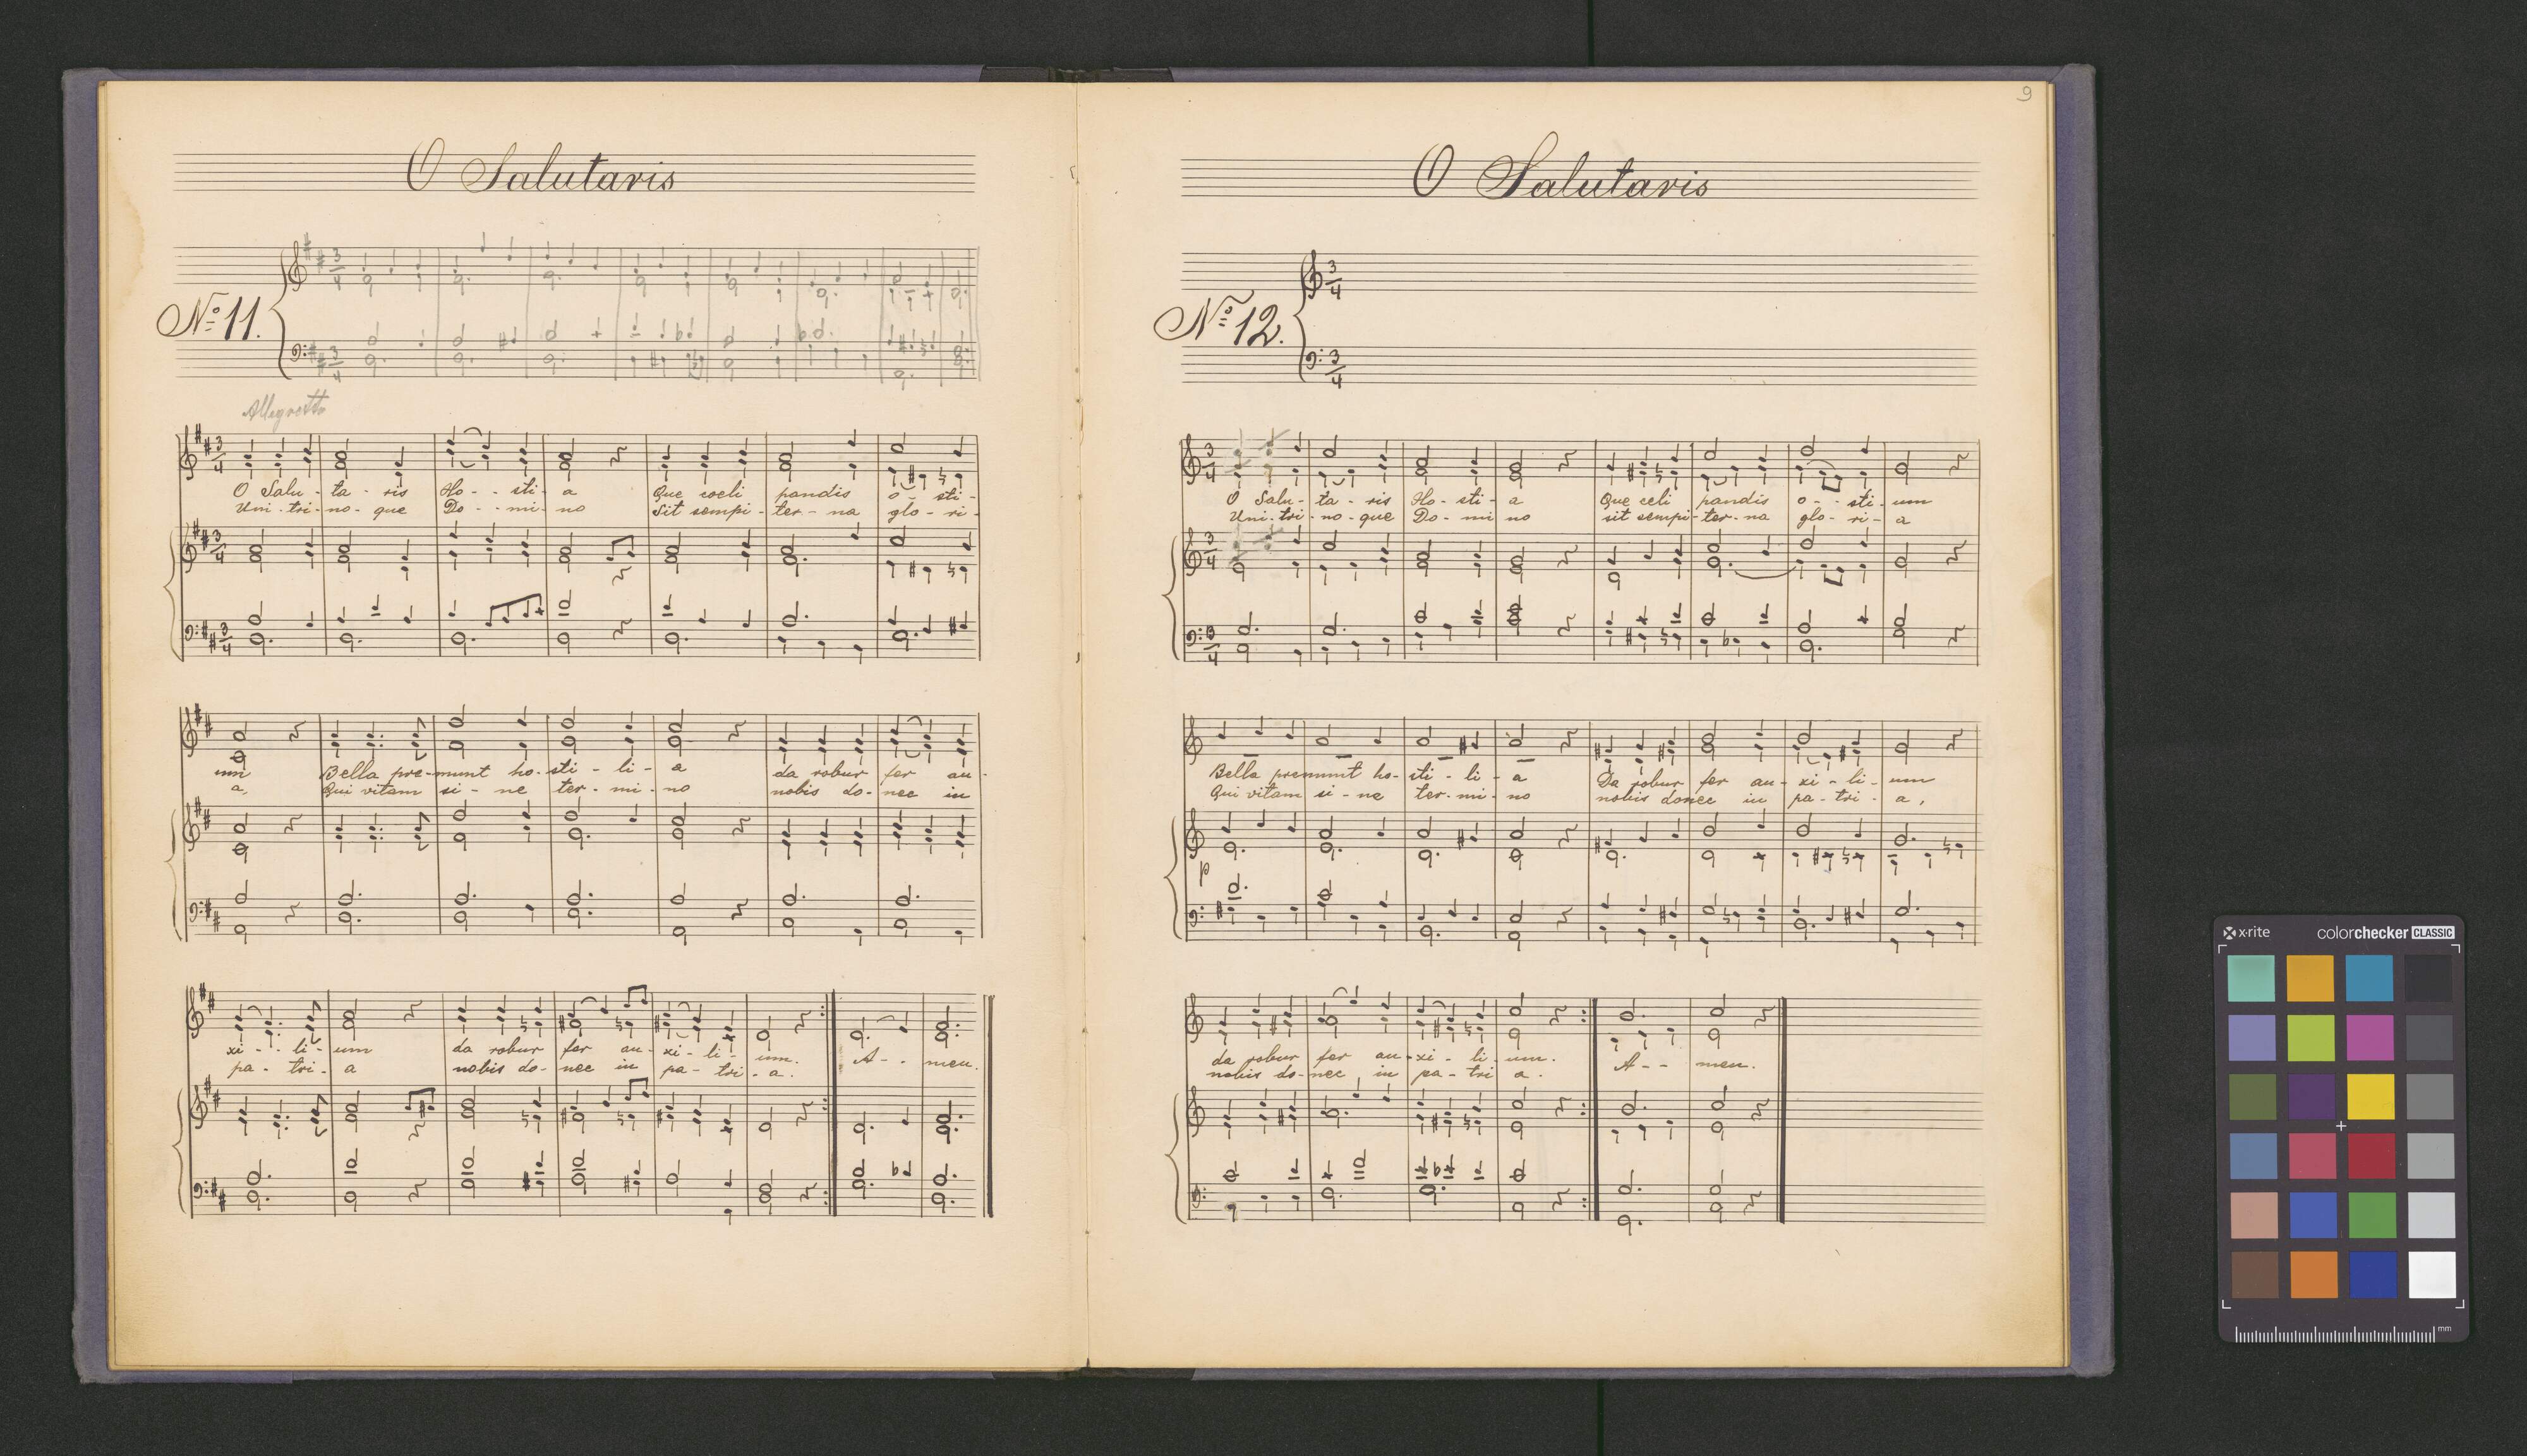 O Salutaris
No 11.
3 4
3 4
Allegretto
3 4
O Salu - ta - ris Ho - - sti - a Que coeli pandis o - sti -
Uni - tri - no - que Do - - mi - no Sit sempi - ter - na glo - ri -
3 4
3 4
um Bella pre - munt ho - sti - li - a da robur fer au -
a, Qui vitam si - ne ter - mi - no nobis do - nec in
xi - - li - um da robur fer au - xi - li - um. A - - men.
pa - tri - a nobis do - nec in pa - tri - a.
9
O Salutaris
No 12.
3 4
3 4
3 4
O Salu - ta - ris Ho - sti - a Que celi pandis o - - sti - um
Uni - tri - no - que Do - mi no sit sempi - ter - na glo - ri - a
3 4
3 4
Bella premunt ho - sti - li - a Da robur fer au - xi - li - um
Qui vitam si - ne ter - mi - no nobis donec in pa - tri - a,
p
da robur fer au - xi - li - um. A - - men.
nobis do - nec in pa - tri a.
x·rite colorchecker CLASSIC
mm